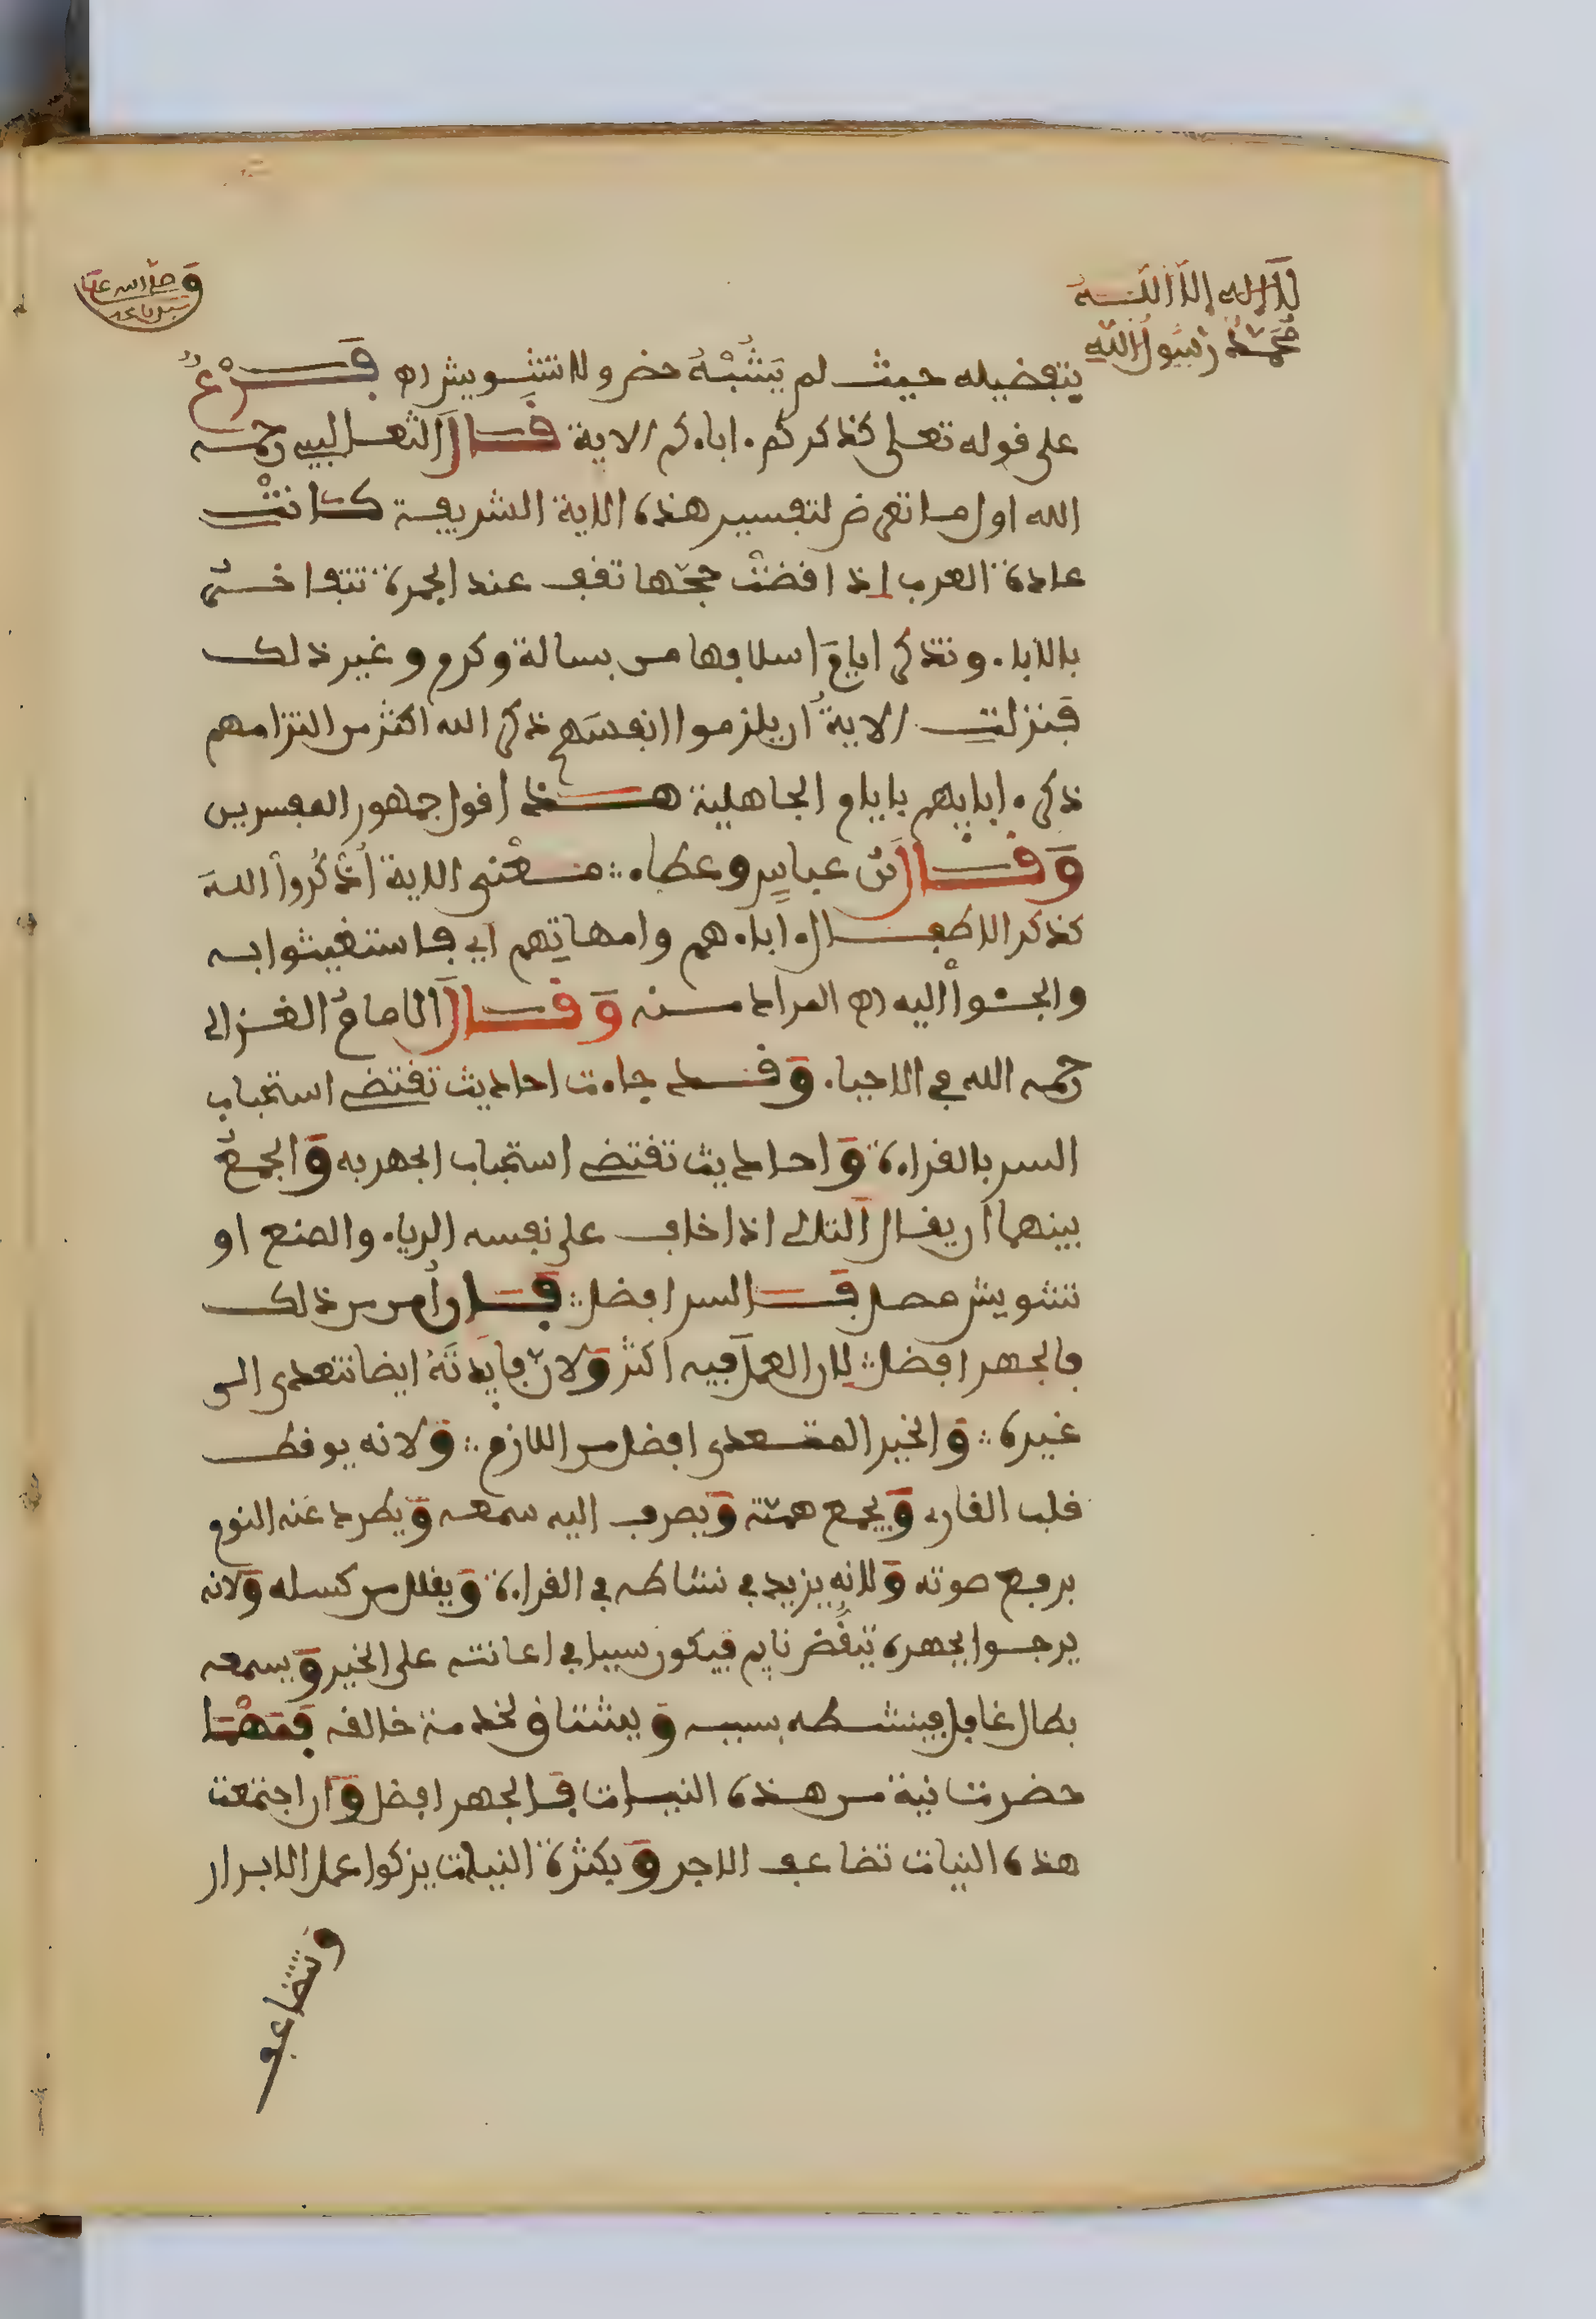 لآ إله إلا الله
محمد رسول الله
وصلى الله على
سيدنا محمد
بتفضيله حيث لم يشبه حضر ولا تشويش اه فرع
على قوله تعلى كذكركم ءاباءكم الاية قال الثعالبي رحمه
الله اول ما تعرض لتفسير هذه الاية الشريفة كانت
عادة العرب إذا قضت حجها تقف عند الجمرة تتفاخر
بالابا. وتذكر ايام اسلافها من بسالة وكرم وغير ذلك
فنزلت الاية ان يلزموا انفسهم ذكر الله اكثر من التزامهم
ذكر ءابايهم بايام الجاهلية هذا قول جمهور المفسرين
وقال بن عباس وعطاء ؞ معنى الاية أذكروا الله
كذكر الاطفال ءاباءهم وامهاتهم اي فاستغيثوا به
والجئوا اليه اه المراد منه وقال الامام الغزالي
رحمه الله في الاحياء. وقد جاءت احاديث تقتضي استحباب
السر بالقراءة واحاديث تقتضي استحباب الجهر به والجمع
بينهما ان يقال التالي اذا خاف على نفسه الرياء والصنع او
تشويش مصل فالسر افضل ؞ فان أمن من ذلك
فالجهر افضل ؞ لان العمل فيه اكثر ولان فايدته ايضا تتعدى الى
غيره ؞ والخير المتعدى افضل من اللازم ؞ ولانه يوقظ
قلب القارء ويجمع همته ويصرف اليه سمعه ويطرد عنه النوم
برفع صوته ولانه يزيد في نشاطه في القراءة ويقلل من كسله ولانه
يرجوا بجهره تيقض نايم فيكون سببا في اعانته على الخير ويسمعه
بطال غافل فينشطه بسببه ويشتاق لخدمة خالقه فمهما
حضرت نية من هذه النيات فالجهر افضل وان اجتمعت
هذه النيات تضاعف الاجر وبكثرة النيات يزكوا عمل الابرار
وتتضاعف